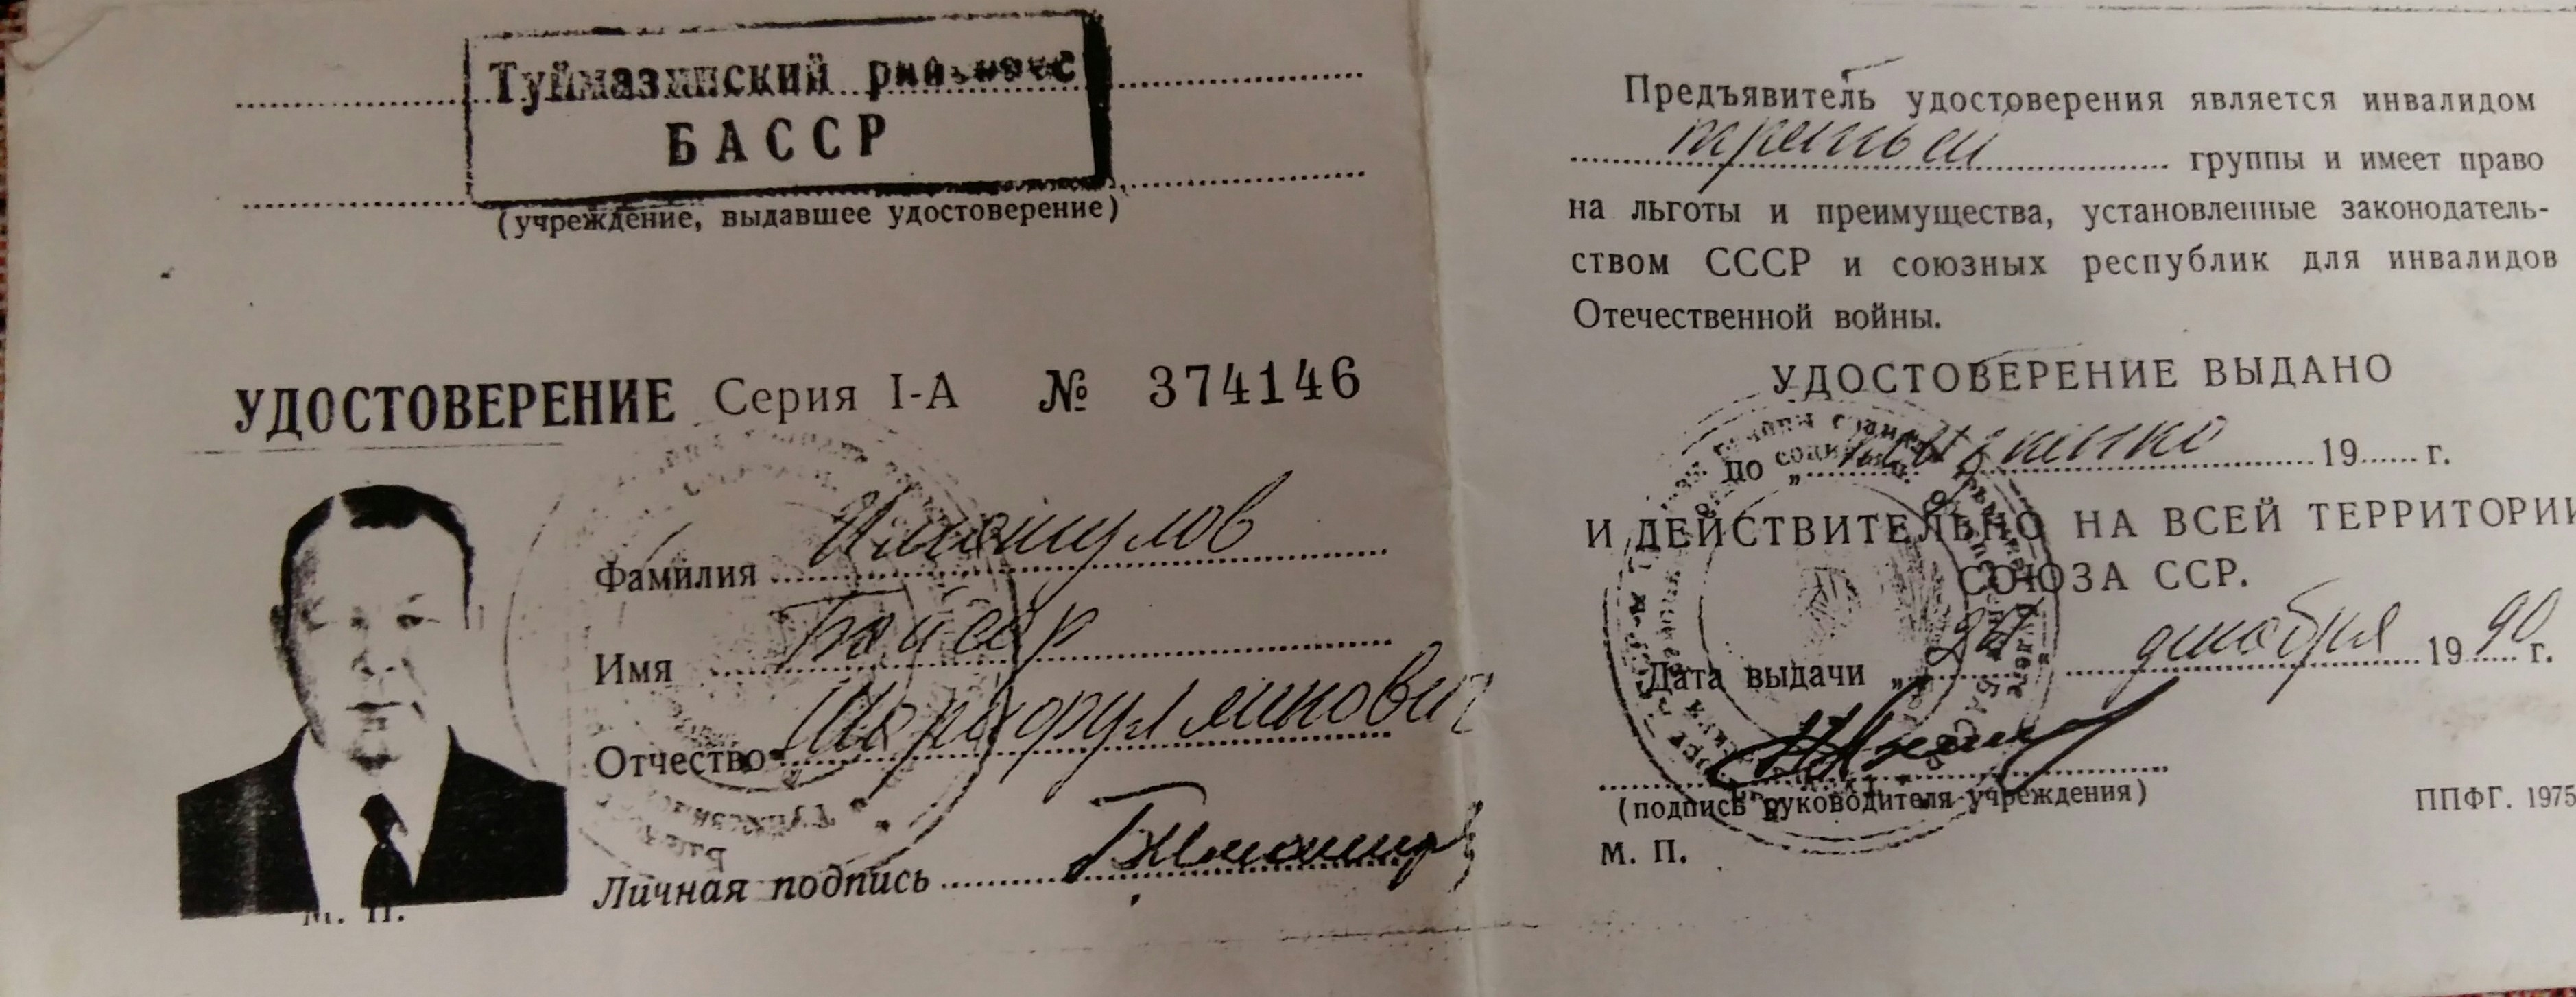 Туймазинский
БАССР
(учреждение, выдавшее удостоверение)
УДОСТОВЕРЕНИЕ Серия I-А № 374146
Фамилия Имашулов
Имя
Отчество
Личная подпись
М. П.
Предъявитель удостоверения является инвалидом
третьей группы и имеет право
на льготы и преимущества, установленные законодатель-
ством СССР и союзных республик для инвалидов
Отечественной войны.
УДОСТОВЕРЕНИЕ ВЫДАНО
до „ 19 г.
И ДЕЙСТВИТЕЛЬНО НА ВСЕЙ ТЕРРИТОРИИ
СОЮЗА ССР.
Дата выдачи „ декабря 1990 г.
(подпись руководителя учреждения)
ППФГ. 1975
М. П.